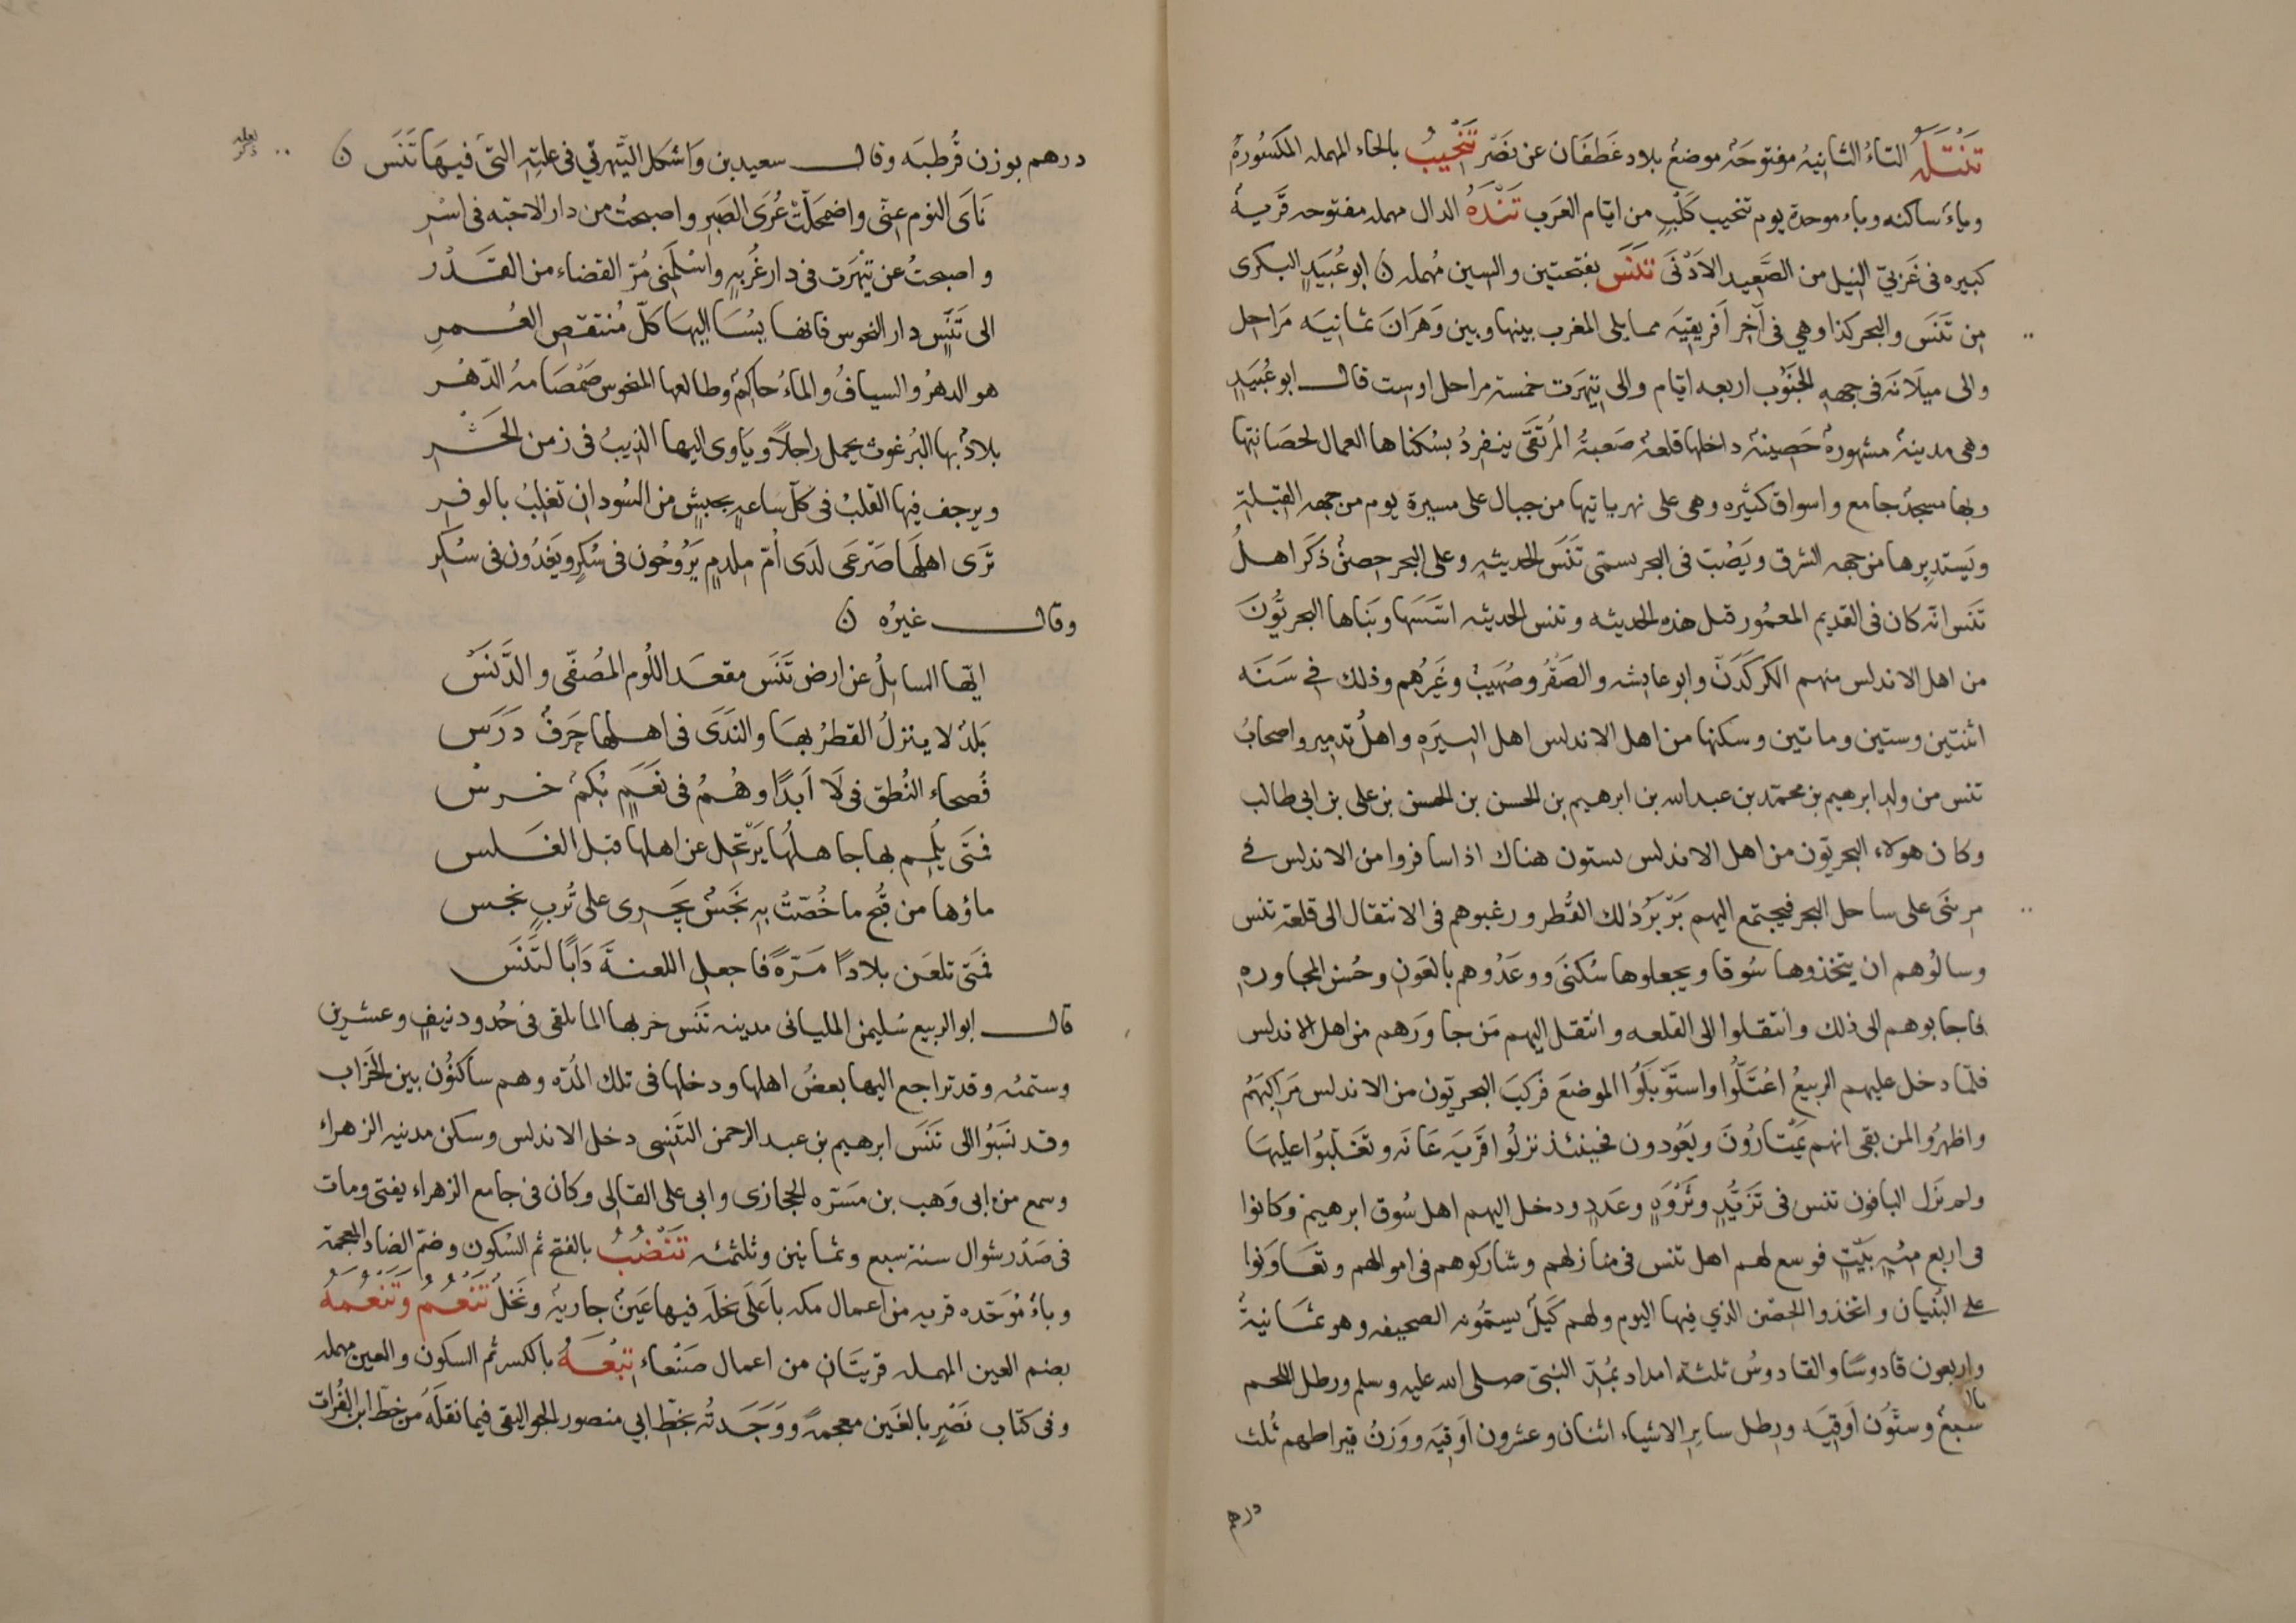 تَنْتَلَهُ التاءُ الثانيهُ مفتوحَهٌ موضعٌ بلاد غَطَفَان عن نَصْر تَنْحِيبُ بالحاء المهمله المكسُورهٔ
وياءٌ ساكنه وباء موحدة يوم تنحيب كَلْبٍ من ايّام العَرَب تَنْدَهُ الدال مهمله مفتوحه قَريهٌ
كبيره فى غَربىّ النيل من الصَّعِيد الاَدْنَى تَنَس بفتحتين والسين مُهمله ن ابو عُبَيدٍ البكرى
مِن تَنَسَ والبحر كذا وهي فى آخر اَفريقِيَه مما يلى المغرب بينها وبين وَهَرَانَ ثمانيَه مَرَاحل
والى ميلَانَه فى جهه الجنَوُب اربعه ايّام والى تِيهَرت خمسة مراحل او ست قال ابو عُبَيدٍ
وهى مدينهٌ مشهورهٌ حَصِينهٌ داخلها قلعهٌ صَعبةُ المُرتَقَى ينفردُ بسُكناها العمال لحصَانتها
وبها مسجدٌ جامع واسواق كثيره وهى على نهر ياتيها من جبال على مسيرة يوم من جهه القبلةِ
ويَستدِيرها من جهه الشرق ويَصُبّ فى البحر يسمّى تَنَسَ الحديثهِ وعلى البحر حِصنٌ ذَكَرَ اهلُ
تَنَس انّه كان فى القديم المعمُور قبل هذه الحديثه وتنس الحديثه اسّسَها وبَنَاها البحريّونَ
من اهل الاندلس منهم الكركَدَنّ وابو عايشه والصَقُر وصُهَيبٌ وغَيرُهم وذلك فى سَنَه
اثنتين وستين وماتين وسكنها من اهل الاندلس اهل البيرَهِ واهلُ تدمير واصحابُ
تنس من ولدِ ابرهيم بن محمّد بن عبد الله بن ابرهيم بن الحسن بن الحسن بن على بن ابى طالب
وكان هولاء البحريّون من اهل الاندلس يستون هناك اذا سافروا من الاندلس فى
مرسَى على ساحل البحر فيجتمع اليهم بَرّبَرُ ذلك القُطر ورغبوهم فى الانتقال الى قلعة تنس
وسالُوهم ان يتخذوها سُوقا ويجعلوها سُكنَى ووعَدُوهم بالعَون وحُسن المجاورهِ
فاجابوهم الى ذلك وانتقلوا الى القلعه وانتقل اليهم مَن جاوَرَهم من اهل الاندلس
فلمّا دخل عليهم الربيعُ اعْتَلُّوا واستَوْبَلَوُا الموضعَ فركبَ البحريّون من الاندلس مَرَاكبَهُم
واظهرُوا لمن بقى انهم يَمْتَارُونَ ويَعُودون فحينئذ نزلوُا قَريَه بَجَانَه وتغَلّبوُا عليهَا
ولم يَزَل الباقون تنس فى تَزَيُّدٍ وثَرْوَهٍ وعَدَدٍ ودخل اليهم اهل سُوق ابرهيم وكانوا
فى اربع مِئهِ بَيتٍ فوسع لهم اهل تنس فى منازلهم وشاركوهم فى اموالهم وتعَاوَنوا
على البُنيان واتخذوا الحِصْن الذي فيها اليوم ولهم كَيلٌ يسمّونه الصحيفه وهو ثمَانيهٌ
واربعون قادوسًا والقادوسُ ثلثة امداد بمُدّ النبىّ صلى الله عليه وسلم ورطل اللحم
بالـ
سَبعٌ وستّون اَوقِيَه ورِطل سايرِ الاشياء اثنان وعشرون اَوقِيَه ووَزنُ قيراطهم ثُلث
درهم
درهم بوزن قُرطبَه وقال سعيد بن وَاشكل التِّيهرتي فى علتِهِ التىَ فيهَا تَنَسَ ن
نَاىَ النوم عنّى واضمحَلّتْ عُرَى الصَبرِ واصبحتُ من دار الاحبّه فى اسْرِ
واصبحتُ عن تِيْهَرت فى دار غُربهٍ واسْلَمَنى مُرّ القضاء من القَدْر
الى تَنَسٍ دار النحوس فانها يُسَا اليهَا كلّ مُنتقِصِ العُمرِ
هو الدهرُ والسيافُ والماءُ حاكمٌ وطالعها المنحوس صَمْصَامهُ الدّهْرِ
بلادٌ بها البُرغوث يحمل راجلاً ويَاوى اليها الذِيبُ فى زمن الحَشْرِ
ويرجف فيها القلبُ فى كلّ سَاعهٍ بجيشٍ من السُودانِ تغلِبُ بالوفرِ
تَرَى اهلَهَا صَرْعَى لدَى اُمّ مِلدمٍ يَرُوحُون فى سُكرٍ ويَغدُون فى سُكرِ
وقال غيرُه ن
ايّها السايِلُ عن ارض تَنَسَ مقعَد اللُوم المُصَفّى والدَّنَسْ
بَلَدٌ لا ينزلُ القطرُ بهَا والنَدَى فى اهلها حَرفٌ دَرَسْ
فُصحاء النُطق فى لَا اَبَدًا وهُمُ فى نَعَمٍ بُكمٌ خرسْ
فمَتَى يُلمِم بها جاهلُها يَرْتحِل عن اهلها قبل الغَلَس
ماؤها من قُبحِ ما خُصّتْ بهِ نَجَسٌ يَجَرى على تُربٍ نجس
فمَتى تلعَن بلادًا مَرّةً فاجعل اللعنةَ دَابًا لتَنَسَ
قال ابو الربيع سُليمن الملياني مدينه تَنَس خربها الما وبَقى فى حُدود نيفٍ وعشرين
وستمئه وقد تراجع اليها بعضُ اهلها ودخلها فى تلك المُدّه وهم سَاكنُون بين الخَرَاب
وقد نسَبَوُا الى تَنَسَ ابرهيم بن عبد الرحمن التَنَسِى دخل الاندلس وسكن مدينه الزهراءِ
وسمع من ابى وَهب بن مَسَرّه الحجازى وابى على القالِى وكان فى جامع الزهراء يفتى ومات
فى صَدْر شوال سنة سبع وثمانين وثلثمئه تَنْضُبُ بالفتح ثم السُكون وضمّ الضاد المعجمهِ
وباءٌ مُوَحّده قريه من اعمال مكه باَعلَى نخلَه فيها عَينٌ جاريهٌ ونَخلٌ تَنْعُمُ وتَنْعُمَهُ
بضم العين المهمله قريَتَان من اعمال صَنْعاء تِنْعَهُ بالكسر ثم السكون والعين مهمله
وفى كتاب نَصْرٍ بالغَين معجمةً ووَجَدتُه بخَطّ ابى منصور الجواليقى فيما نقلَه من خطّ ابن الفُرات